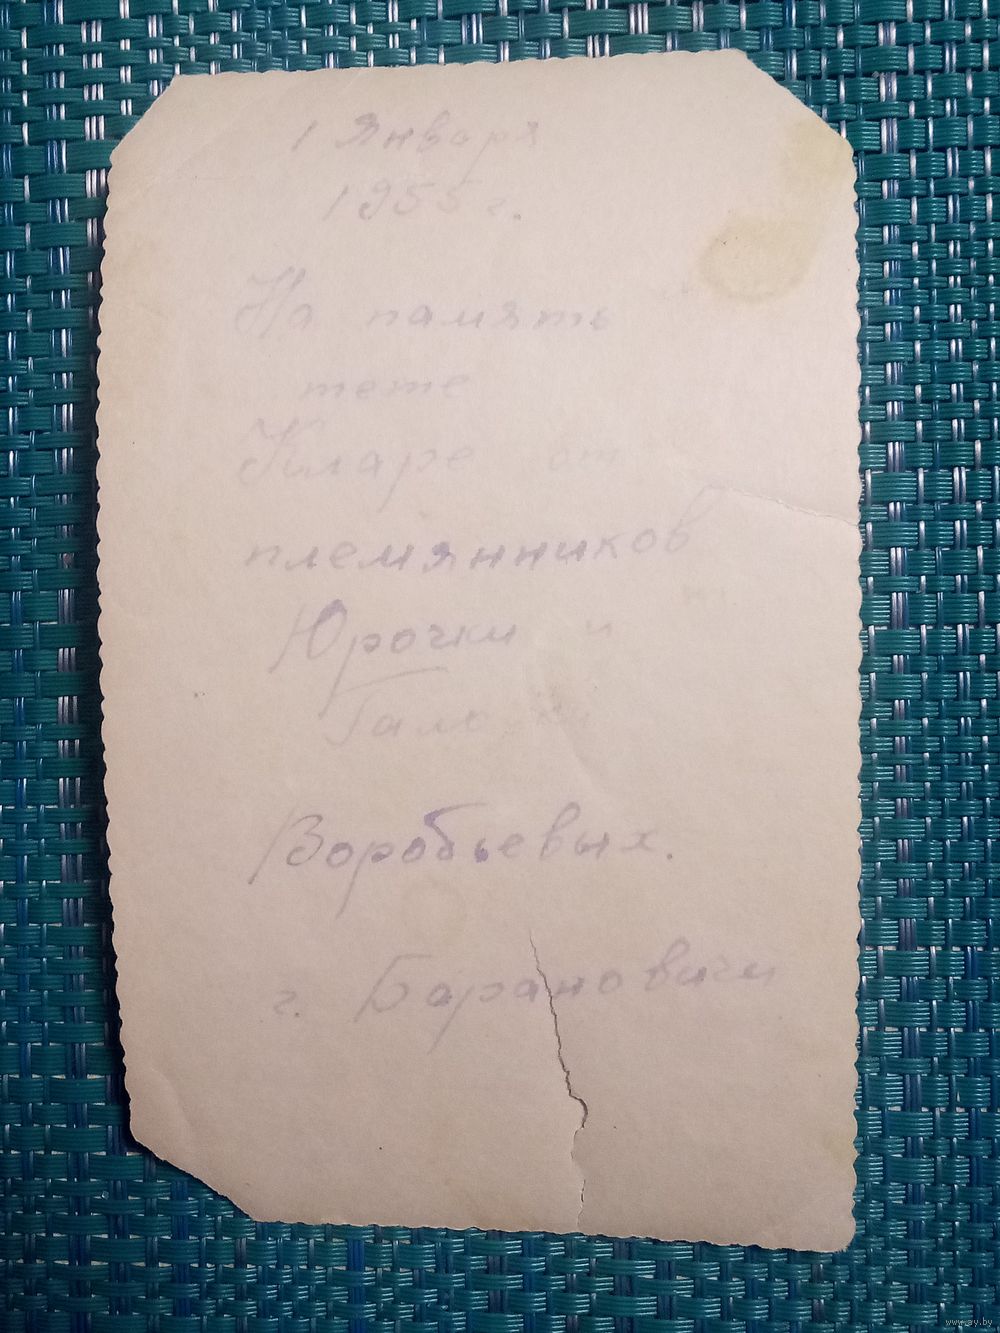 1 Января
1955 г.
На память
тете
Кларе от
племянников
Юрочки и
Воробьевых.
г. Барановичи
www.ay.by